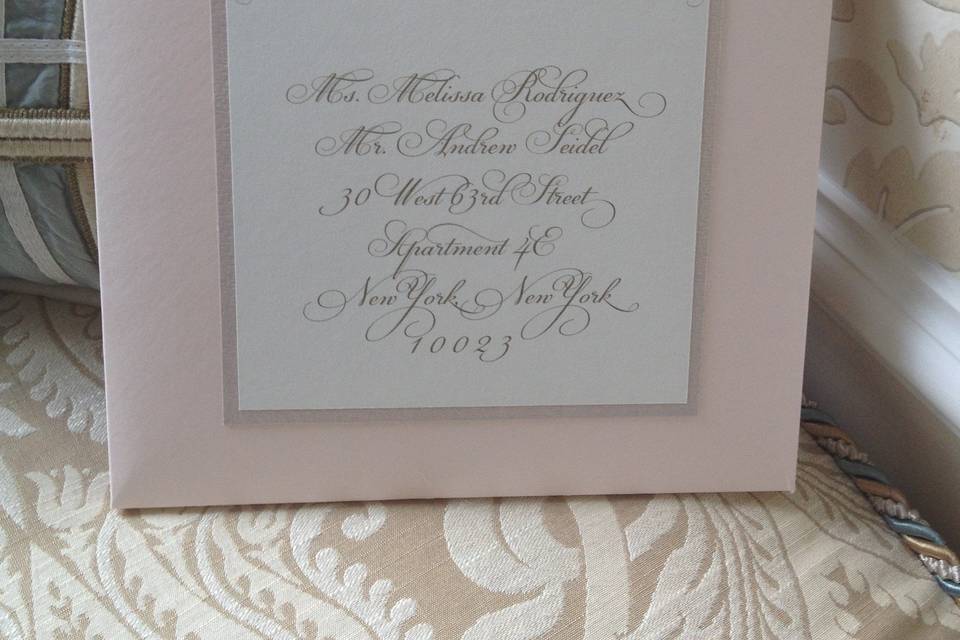 Ms. Melissa Rodriguez
Mr. Andrew Seidel
30 West 63rd Street
Apartment 4E
New York, New York
10023